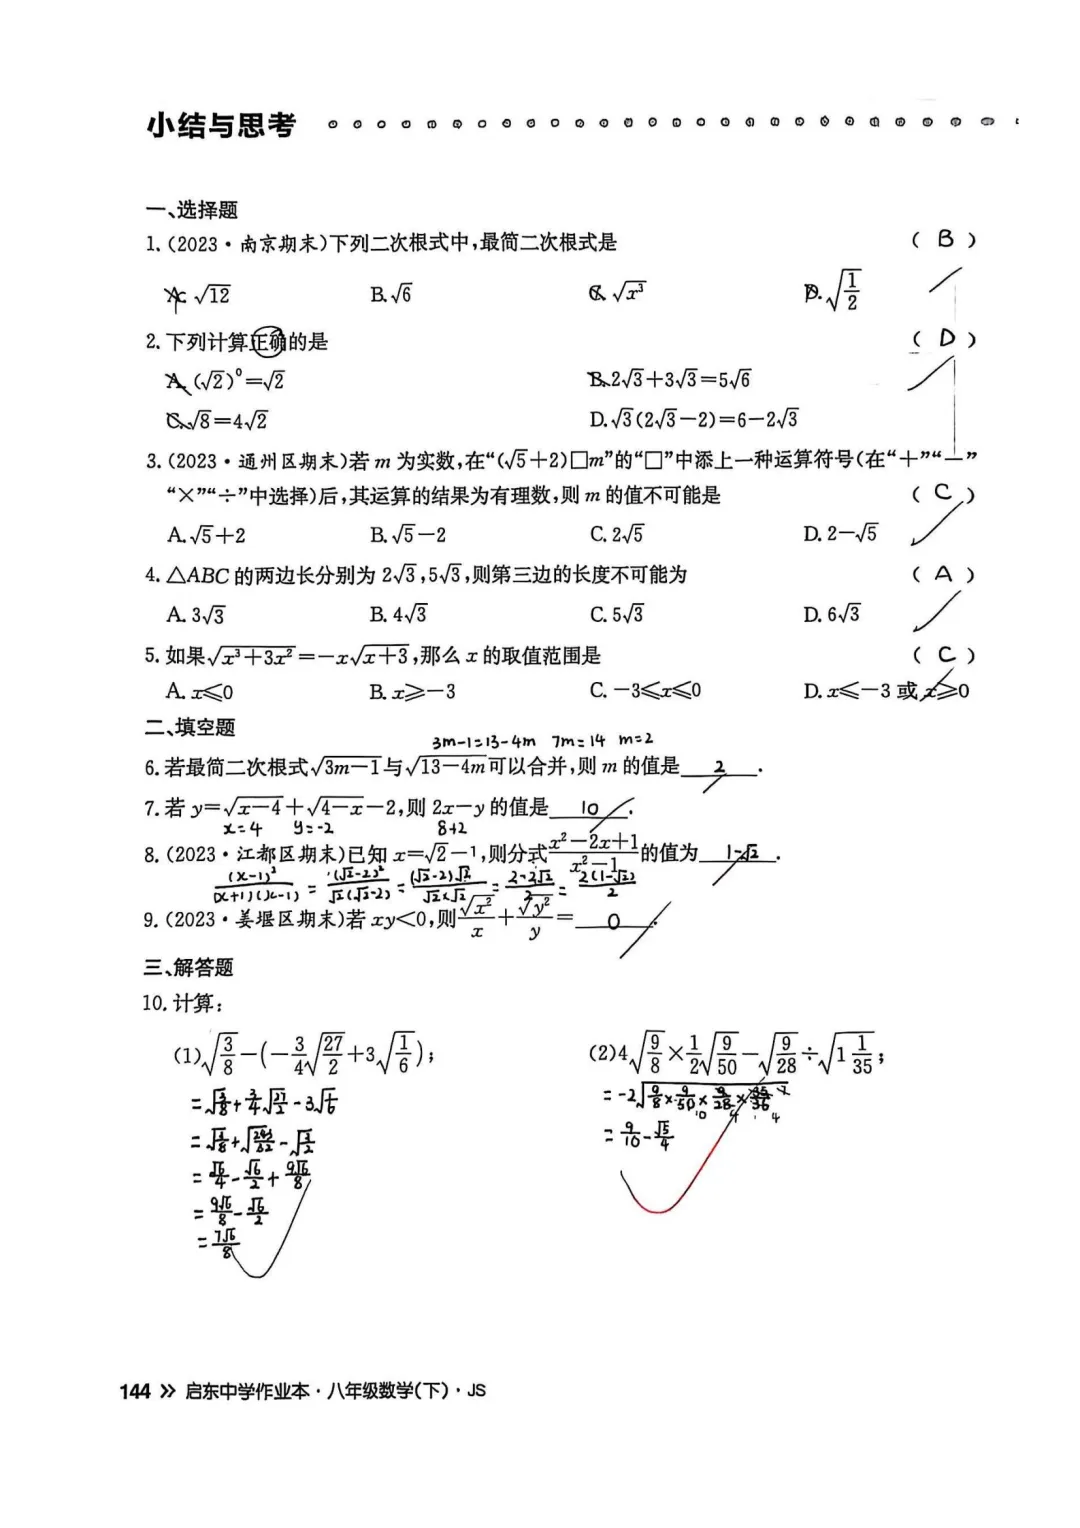 小结与思考
一、选择题
1.(2023·南京期末)下列二次根式中,最简二次根式是 ( B )
A. √12 B. √6 C. √x³ D. √(1/2)
2.下列计算正确的是 ( D )
A. (√2)⁰=√2 B. 2√3+3√3=5√6
C. √8=4√2 D. √3(2√3-2)=6-2√3
3.(2023·通州区期末)若 m 为实数,在“(√5+2)□m”的“□”中添上一种运算符号(在“+”“-”
“×”“÷”中选择)后,其运算的结果为有理数,则 m 的值不可能是 ( C )
A. √5+2 B. √5-2 C. 2√5 D. 2-√5
4. △ABC 的两边长分别为 2√3,5√3,则第三边的长度不可能为 ( A )
A. 3√3 B. 4√3 C. 5√3 D. 6√3
5.如果√(x³+3x²)=-x√(x+3),那么 x 的取值范围是 ( C )
A. x≤0 B. x≥-3 C. -3≤x≤0 D. x≤-3 或 x≥0
二、填空题
3m-1=13-4m 7m=14 m=2
6.若最简二次根式√(3m-1)与√(13-4m)可以合并,则 m 的值是 2 .
7.若 y=√(x-4)+√(4-x)-2,则 2x-y 的值是 10 .
x=4 y=-2 8+2
8.(2023·江都区期末)已知 x=√2-1,则分式(x²-2x+1)/(x²-1)的值为 1-√2 .
(x-1)²/(x+1)(x-1) = (√2-2)²/√2(√2-2) = (√2-2)√2/√2×√2 = 2-2√2/2 = 2(1-√2)/2
9.(2023·姜堰区期末)若 xy<0,则√x²/x+√y²/y= 0
三、解答题
10.计算:
(1)√(3/8)-(-3/4√(27/2)+3√(1/6)); (2)4√(9/8)×1/2√(9/50)-√(9/28)÷√(1 1/35);
=√(3/8)+3/4√(27/2)-3√(1/6)
=√6/4-√6/2+9√6/8
=9/10-√5/4
=9√6/8-√6/2
=7√6/8
144 >> 启东中学作业本·八年级数学(下)·JS